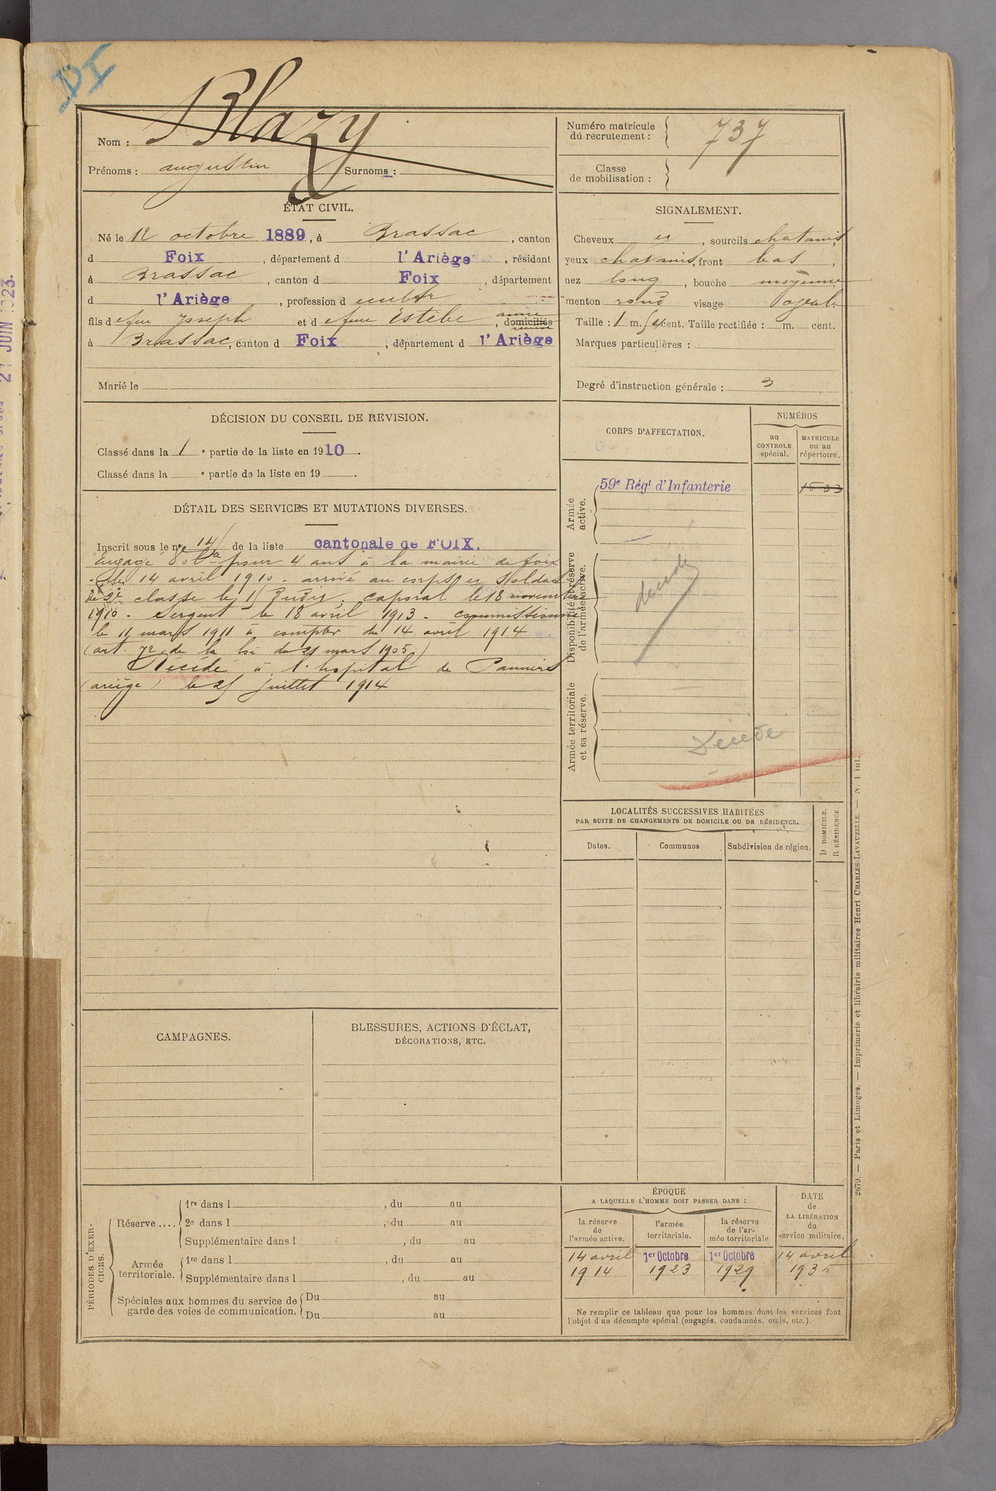 DI
Nom : Blazy
Prénoms : augustin Surnoms :
Numéro matricule du recrutement : 737
Classe de mobilisation :
ÉTAT CIVIL.
Né le 12 octobre 1889, à Brassac, canton
d Foix, département d l'Ariège, résidant
à Brassac, canton d Foix, département
d l'Ariège, profession d cultr
fils d efeu Joseph et d efeue Estèbe, domiciliés
à Brassac, canton d Foix, département d l'Ariège
Marié le
SIGNALEMENT.
Cheveux et, sourcils chatains
yeux chatains, front bas,
nez long, bouche moyenne
menton rond visage ovale
Taille : 1 m. cent. Taille rectifiée : m. cent.
Marques particulières :
Degré d'instruction générale : 3
DÉCISION DU CONSEIL DE REVISION.
Classé dans la 1e partie de la liste en 1910.
Classé dans la e partie de la liste en 19 .
DÉTAIL DES SERVICES ET MUTATIONS DIVERSES.
Inscrit sous le no 14 de la liste cantonale de FOIX.
Engagé Volre pour 4 ans à la mairie de foix
le 14 avril 1910 - arrivé au corps et Soldat
de 2e classe le caporal le 18 novembre
1910 - Sergent le 18 avril 1913 - commissionné
le 11 mars 1911 à compter du 14 avril 1914
(art. de la loi du 21 mars 1905)
Décédé à l'hopital de Pamiers
(ariège) le 25 juillet 1914
CORPS D'AFFECTATION.
NUMÉROS
au CONTROLE spécial.
MATRICULE ou au répertoire.
Armée active.
59e Régt d'Infanterie
Disponibilité et réserve de l'armée active.
décédé
Armée territoriale et sa réserve.
Décédé
LOCALITÉS SUCCESSIVES HABITÉES
PAR SUITE DE CHANGEMENTS DE DOMICILE OU DE RÉSIDENCE.
Dates. Communes. Subdivision de région. D DOMICILE. R RÉSIDENCE.
CAMPAGNES.
BLESSURES, ACTIONS D'ÉCLAT,
DÉCORATIONS, ETC.
PÉRIODES D'EXERCICES.
Réserve .... 1re dans l , du au
2e dans l , du au
Supplémentaire dans l , du au
Armée territoriale. 1re dans l , du au
Supplémentaire dans l , du au
Spéciales aux hommes du service de garde des voies de communication. Du au
Du au
ÉPOQUE
A LAQUELLE L'HOMME DOIT PASSER DANS :
la réserve de l'armée active. l'armée territoriale. la réserve de l'armée territoriale.
DATE de LA LIBÉRATION du service militaire.
14 avril 1er Octobre 1er Octobre 14 avril
1914 1923 1929 1935
Ne remplir ce tableau que pour les hommes dont les services font
l'objet d'un décompte spécial (engagés, condamnés, omis, etc.).
2679. — Paris et Limoges. — Imprimerie et librairie militaires Henri CHARLES-LAVAUZELLE. — N. 1 int.